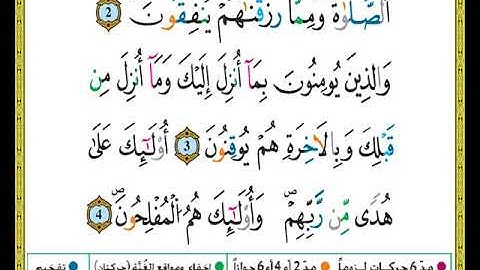 الصَّلَوٰةَ وَمِمَّا رَزَقْنَاهُمْ يُنفِقُونَ 2
وَالذِينَ يُومِنُونَ بِمَآ أُنزِلَ إِلَيْكَ وَمَآ أُنزِلَ مِن
قَبْلِكَ وَبِالَاخِرَةِ هُمْ يُوقِنُونَ 3 أُوْلَٰٓئِكَ عَلَىٰ
هُدًى مِّن رَّبِّهِمْ وَأُوْلَٰٓئِكَ هُمُ الْمُفْلِحُونَ 4
مدّ 6 حركات لـزومـاً مدّ 2 أو 4 أو 6 جوازاً إخفاء ومواقع الغُنَّة (حركتان) تفخيم